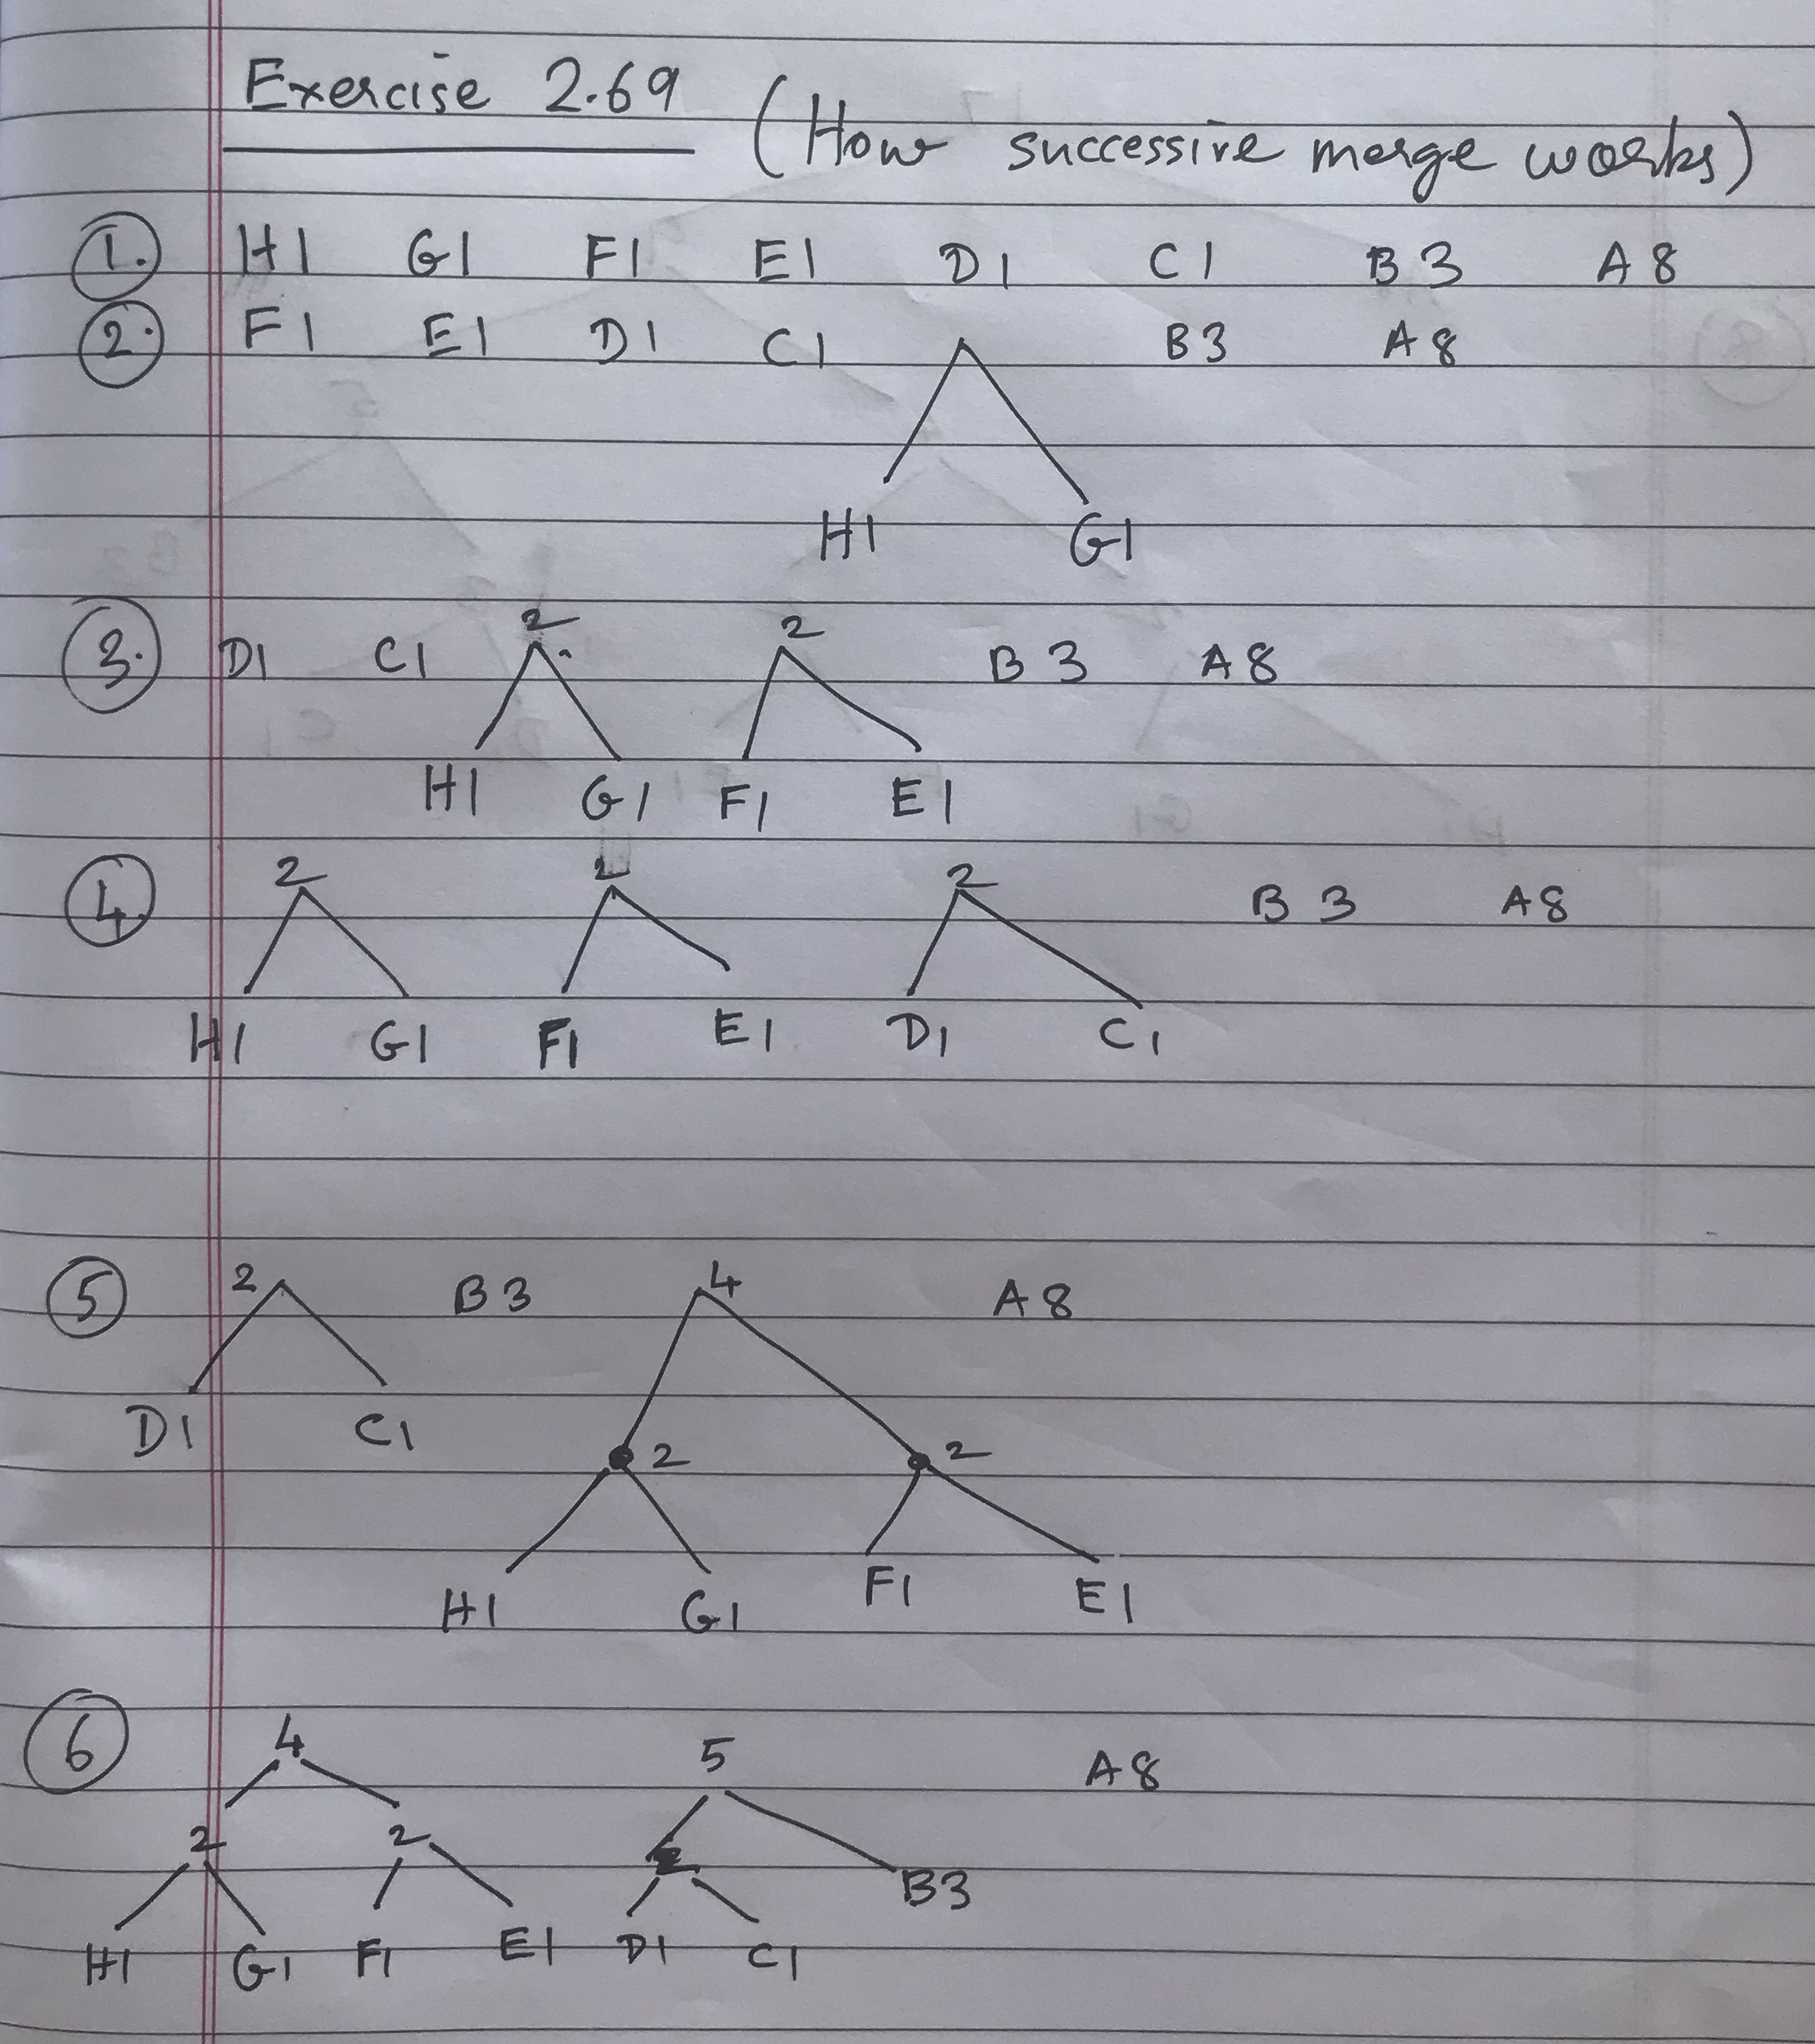 Exercise 2.69 (How successive merge works)
1. H1 G1 F1 E1 D1 C1 B3 A8
2. F1 E1 D1 C1 B3 A8
H1 G1
2 2
3. D1 C1 B3 A8
H1 G1 F1 E1
2 2 2
4. B3 A8
H1 G1 F1 E1 D1 C1
5 2 B3 4 A8
D1 C1 2 2
H1 G1 F1 E1
6 4 5 A8
2 2 2 B3
H1 G1 F1 E1 D1 C1